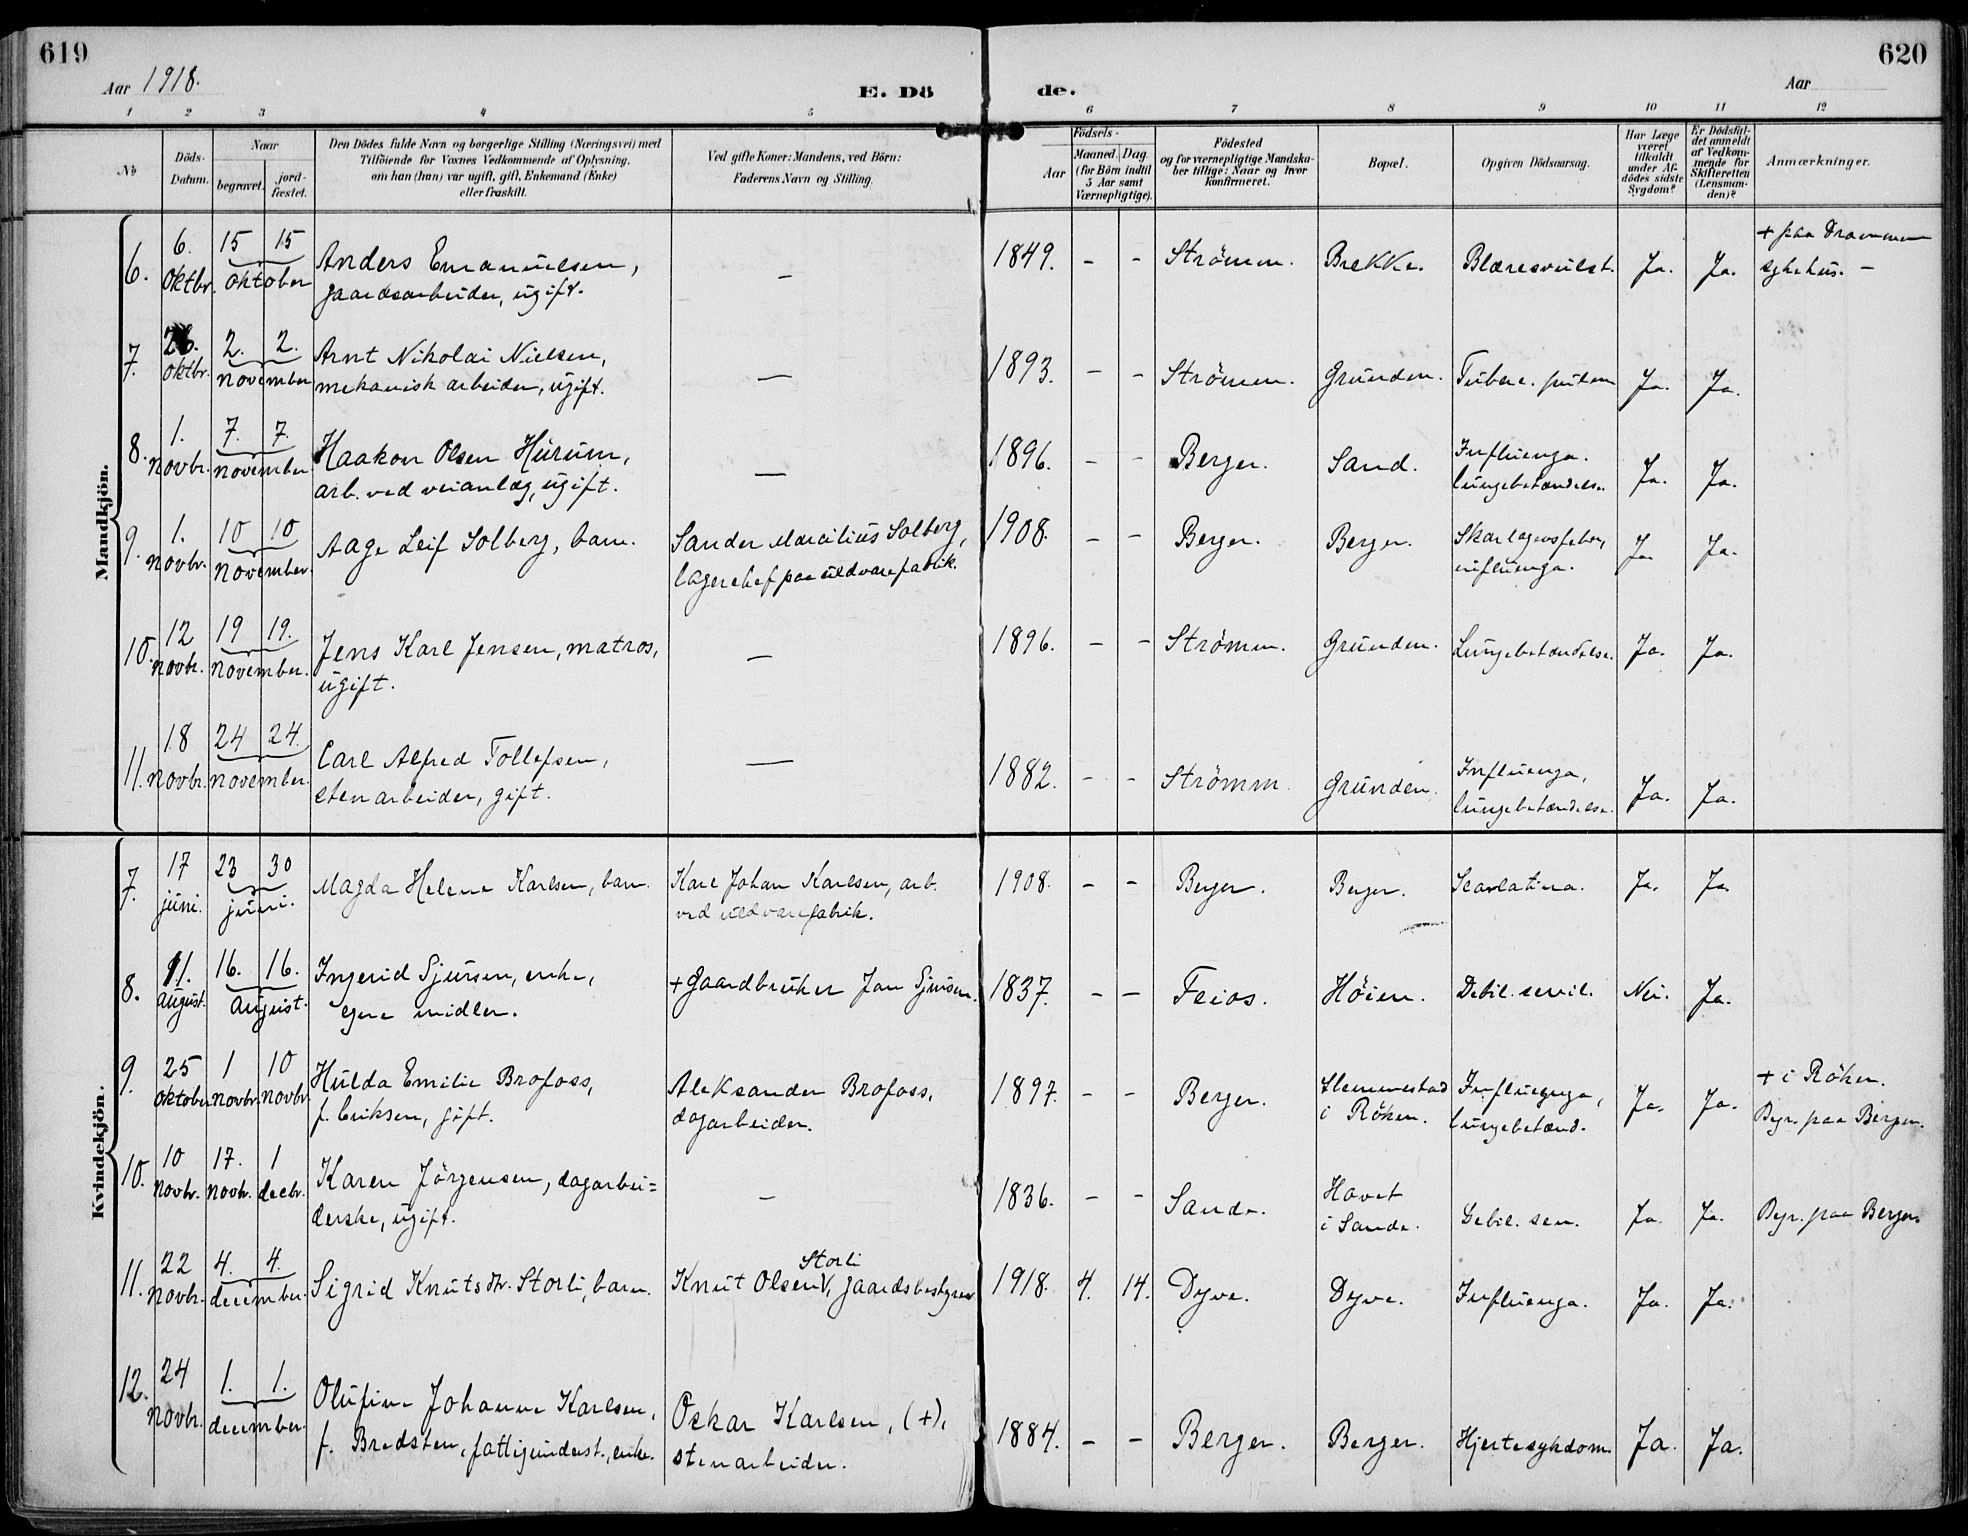 619
Aar 1918.
E. Dö
1 2 3 4 5
No
Döds-
Datum.
Naar
begravet.
jord-
fæstet.
Den Dödes fulde Navn og borgerlige Stilling (Næringsvei) med
Tilföiende for Voxnes Vedkommende af Oplysning,
om han (hun) var ugift, gift, Enkemand (Enke)
eller fraskilt.
Ved gifte Koner: Mandens, ved Börn:
Faderens Navn og Stilling.
Mandkjön.
6. 6. oktbr. 15 15 oktober
Anders Emanuelsen,
gaardsarbeider, ugift.
—
7. 26. oktbr. 2. 2. november
Arnt Nikolai Nielsen,
mekanisk arbeider, ugift.
—
8. 1. novbr. 7. 7. november
Haakon Olsen Hurum,
arb. ved veianlæg, ugift.
—
9. 1. novbr. 10 10 november
Aage Leif Solberg, barn.
Sander Marcilius Solberg,
lagerchef paa uldvarefabrik.
10. 12 novbr. 19 19. november.
Jens Karl Jensen, matros,
ugift.
—
11. 18 novbr. 24 24. november.
Carl Alfred Tollefsen,
stenarbeider, gift.
—
Kvindekjön.
7. 17 juni. 23 30 juni.
Magda Helene Karlsen, barn.
Karl Johan Karlsen, arb.
ved uldvarefabrik.
8. 11. august. 16. 16. august.
Ingerid Sjursen, enke,
egne midler.
+ Gaardbruker Jan Sjursen.
9. 25 oktober 1 novbr. 10 novbr.
Hulda Emilie Brofoss,
f. Eriksen, gift.
Aleksander Brofoss,
dagarbeider.
10. 10 novbr. 17. novbr. 1 decbr.
Karen Jörgensen, dagarbei=
derske, ugift.
—
11. 22 novbr. 4. 4. december.
Sigrid Knutsdtr. Storli, barn.
Storli
Knut Olsen V, gaardsbestyrer
12. 24 novbr. 1. 1. december.
Olufine Johanne Karlsen,
f. Bredsten, fattigunderst., enke.
Oskar Karlsen, (+),
stenarbeider.
620
Aar
de.
6 7 8 9 10 11 12
Födsels-
Aar
Maaned. Dag.
(for Börn indtil
5 Aar samt
Værnepligtige).
Födested
og for værnepligtige Mandska-
ber tillige: Naar og hvor
konfirmeret.
Bopæl.
Opgiven Dödsaarsag.
Har Læge
været
tilkaldt
under Af-
dödes sidste
Sygdom?
Er Dödsfal-
det anmeldt
af Vedkom-
mende for
Skifteretten
(Lensman-
den)?
Anmærkninger.
1849. - - Strömm. Brekke. Blæresvulst. Ja. Ja.
+ paa Drammen
sykehus. —
1893. - - Strömm. Grunden. Tuberc. pulm Ja. Ja.
1896. - - Berger. Sand.
Influenza.
lungebetændelse. Ja. Ja.
1908. - - Berger. Berger.
Skarlagensfeber,
influenza. Ja Ja.
1896. - - Strömm. Grunden. Lungebetændelse. Ja. Ja.
1882. - - Strömm. Grunden.
Influenza,
lungebetændelse. Ja. Ja.
1908. - - Berger. Berger. Scarlatina. Ja. Ja.
1837. - - Feios. Höien. Debil. senil. Nei. Ja.
1897. - - Berger.
Slemmestad
i Röken.
Influenza,
lungebetænd. Ja. Ja.
+ i Röken.
Begr. paa Berger.
1836. - - Sande.
Havet
i Sande. Debil. sen. Ja. Ja.
Begr. paa Berger.
1918. 4. 14. Dyve. Dyve. Influenza. Ja. Ja.
1884. - - Berger. Berger. Hjertesykdom. Ja. Ja.